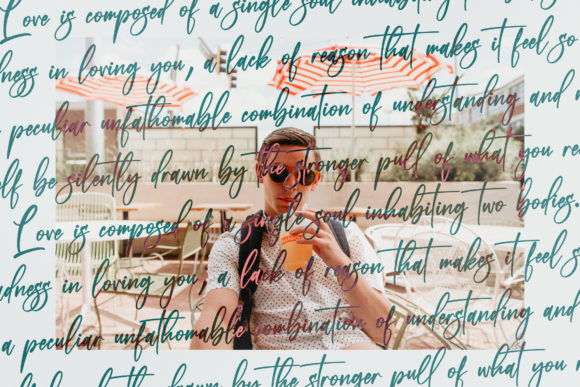 Love is composed of a single soul inhabiting
dness in loving you, a lack of reason that makes it feel so
peculiar unfathomable combination of understanding and
elf be silently drawn by the stronger pull of what you re
Love is composed of a single soul inhabiting two bodies.
adness in loving you, a lack of reason that makes it feel s
a peculiar unfathomable combination of understanding and
silently drawn by the stronger pull of what you